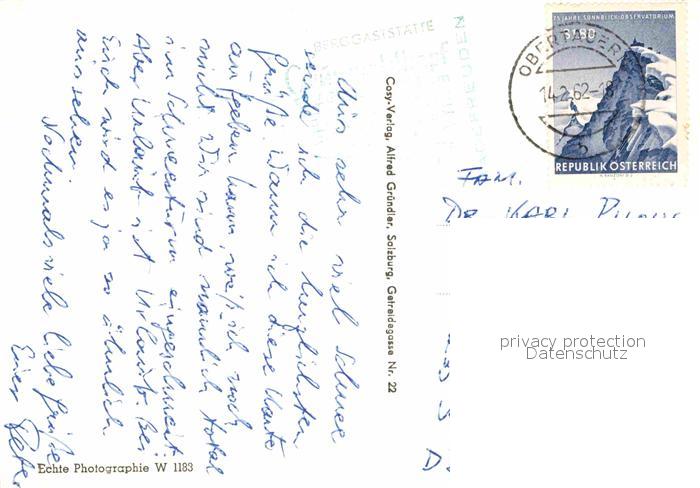 BERGGASTSTÄTTE
75 JAHRE SONNBLICK-OBSERVATORIUM
S 1.80
REPUBLIK ÖSTERREICH
OBERTAUERN
14.2.62-18
b
Aus sehr viel Schnee
sende ich die herzlichsten
Grüße. Wann ich diese Karte
aufgeben kann, weiß ich noch
nicht. Wir sind nämlich total
im Schneesturm eingeschneit.
Aber Urlaub ist Urlaub. Bei
Euch wird es ja so ähnlich
aussehen.
Nochmals viele liebe Grüße
Euer Peter
Cosy-Verlag, Alfred Gründler, Salzburg, Getreidegasse Nr. 22
FAM.
DR. KARL
D
privacy protection
Datenschutz
Echte Photographie W 1183